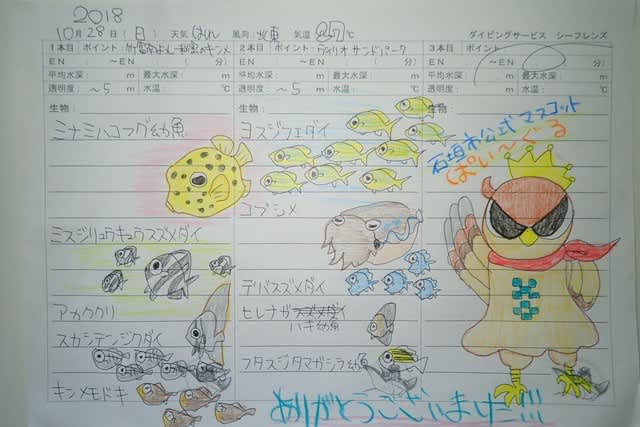 2018
10月28日(日) 天気 はれん 風向 北東 気温 27℃ ダイビングサービス シーフレンズ
1本目 ポイント:竹富 2本目 ポイント:ヴィリオ サンドパーク 3本目 ポイント:
EN ~EN ( 分) EN ~EN ( 分) EN ~EN ( 分)
平均水深: m 最大水深: m 平均水深: m 最大水深: m 平均水深: m 最大水深: m
透明度:~5 m 水温: ℃ 透明度:~5 m 水温: ℃ 透明度: m 水温: ℃
生物: 生物: 生物:
ミナミハコフグ幼魚
ミスジリュウキュウスズメダイ
アカククリ
スカシテンジクダイ
キンメモドキ
ヨスジフエダイ
コブシメ
デバスズメダイ
ヒレナガスズメダイ
ハギ幼魚
フタスジタマガシラ幼魚
石垣市公式マスコット
ぱいーぐる
ありがとうございました!!!